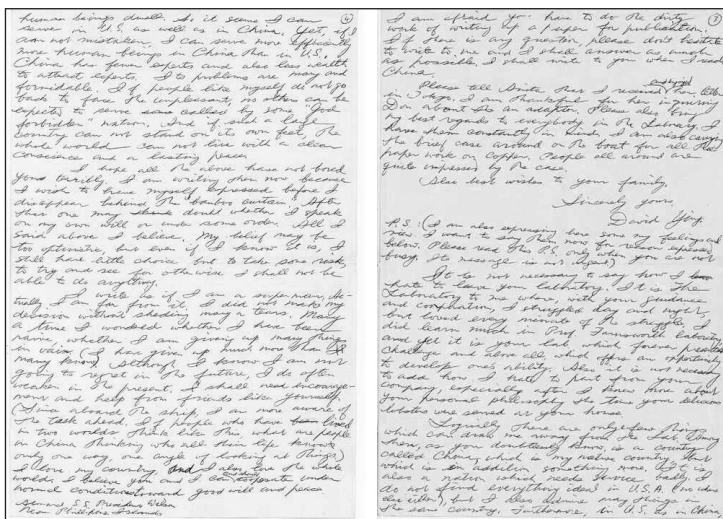 4
human beings dwell. So it seems I can
serve in U.S. as well as in China. Yet, if I
am not mistaken, I can serve more efficiently
more human beings in China than in U.S.
China has fewer experts and also less wealth
to attract experts. Its problems are many and
formidable. If people like myself do not go
back to face the unpleasant, no others can be
expected to serve some called by some "God
forbidden" nation. And if such a large
country can not stand on its own feet, the
whole world can not live with a clean
conscience and a lasting peace.
I hope all the above have not bored
you terribly. I am writing them now because
I wish to have myself expressed before I
disappear behind the "bamboo curtain". After
that one may doubt whether I speak
on my own will or under some order. All I
said above I believe. My belief may be
too optimistic, but even if I know it is, I
still have little choice but to take some risk,
to try and see for otherwise I shall not be
able to do anything.
I write as if I am a superman. Ac-
tually I am far from it. I did not make my
decision without shedding many tears. Many
a time I wondered whether I have been
naive, whether I am giving up many things
in vain. (I have given up much more than
many know) Although I know I am not
going to regret in the future, I do often
weaken in the present. I shall need encourage-
ment and help from friends like yourself.
(Since aboard the ship, I am more aware of
the task ahead. If people who have lived
in two worlds think like this what are people
in China thinking who all their life know
only one way, one angle of looking at things)
I love my country and I also love the whole
world. I believe you and I can cooperate under
normal conditions toward good will and peace
Aboard S.S. President Wilson
Near Phillipine Islands
3
I am afraid you have to do the dirty
work of writing up a paper for publication.
If there is any question, please don't hesitate
to write to me and I shall answer as much
as possible. I shall write to you when I reach
China.
Please tell Anita that I received and enjoyed her letter
in Tokyo. I am thankful for her inquiring
Don about the an addition. Please also bring
my best regards to everybody in the Laboratory. I
have them constantly in mind. I am also carrying
the brief case around on the boat for all the
paper work on Copper. People all around are
quite impressed by the case.
Also best wishes to your family.
Sincerely yours
David
P.S. (I am also expressing here some my feelings and
views. I want to say them now for reason expressed
below. Please read this P.S. only when you are not
busy. Its message is not urgent.)
It is not necessary to say how I
hate to leave your laboratory. It is the
Laboratory to me where, with your guidance
and consultation, I struggled day and night,
but loved every minute of the struggle. I
did learn much in Prof. Farnsworth laboratory
and yet it is your lab. which offers greatest
challenge and above all which offers an opportunity
to develop one's ability. Also it is not necessary
to add how I hate to part from your
company, especially after I know more about
your personal philosophy, the time your delicious
lobsters were served at your house.
Logically there are only few things
which can draw me away from the Lab. Among
them, as you doubtlessly know, is a country
called China, which is my native country, but
which is in addition something more. It is
also a nation which needs service badly. I
do not find everything ideal in U.S.A. (nor China
either), but I also admire many things in
the same country. Furthermore, in U.S. as in China,